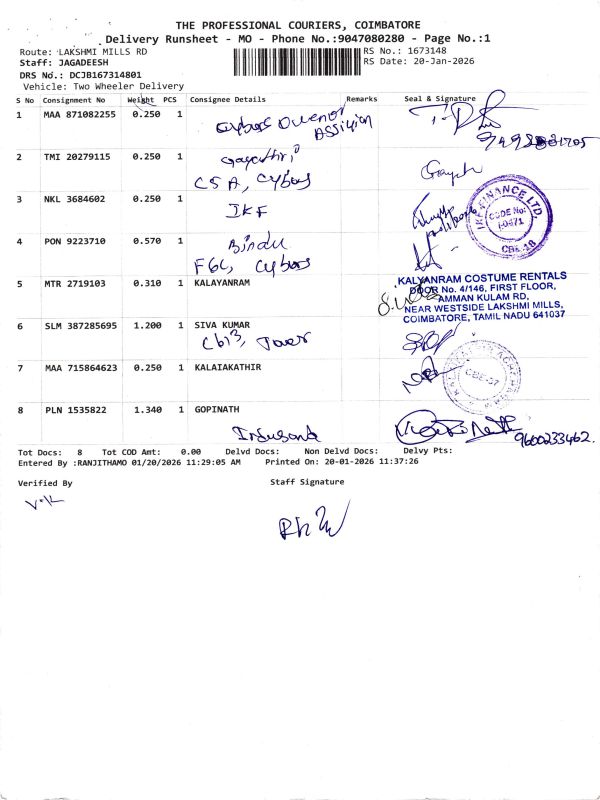 THE PROFESSIONAL COURIERS, COIMBATORE
Delivery Runsheet - MO - Phone No.:9047080280 - Page No.:1
Route: LAKSHMI MILLS RD
RS No.: 1673148
Staff: JAGADEESH
RS Date: 20-Jan-2026
DRS No.: DCJB167314801
Vehicle: Two Wheeler Delivery
S No Consignment No Weight PCS Consignee Details Remarks Seal & Signature
1 MAA 871082255 0.250 1
2 TMI 20279115 0.250 1 Gayathri
CSA, Cybors
Gayath
3 NKL 3684602 0.250 1 IKF
IKF FINANCE LTD.
CODE No:
CBE-18
4 PON 9223710 0.570 1 Bindu
FGC, Cybors
5 MTR 2719103 0.310 1 KALAYANRAM
KALYANRAM COSTUME RENTALS
DOOR No. 4/146, FIRST FLOOR,
AMMAN KULAM RD,
NEAR WESTSIDE LAKSHMI MILLS,
COIMBATORE, TAMIL NADU 641037
6 SLM 387285695 1.200 1 SIVA KUMAR
Tower
7 MAA 715864623 0.250 1 KALAIAKATHIR
CBE-37
8 PLN 1535822 1.340 1 GOPINATH
Indusand
9600233462.
Tot Docs: 8 Tot COD Amt: 0.00 Delvd Docs: Non Delvd Docs: Delvy Pts:
Entered By :RANJITHAMO 01/20/2026 11:29:05 AM Printed On: 20-01-2026 11:37:26
Verified By Staff Signature